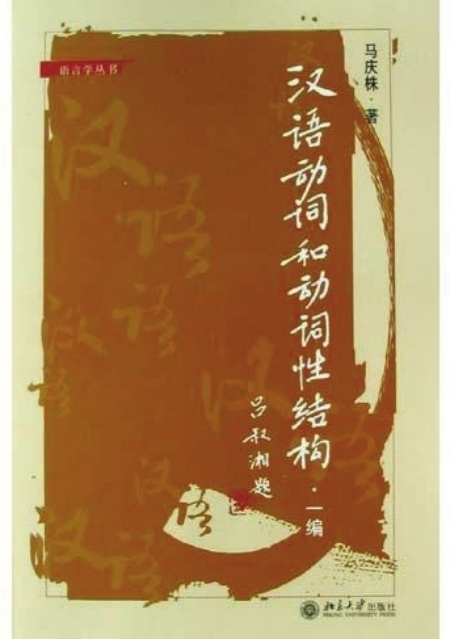 语言学丛书
马庆株·著
汉语动词和动词性结构·一编
吕叔湘题
汉语
汉语
汉语
汉语
汉语
北京大学出版社
PEKING UNIVERSITY PRESS